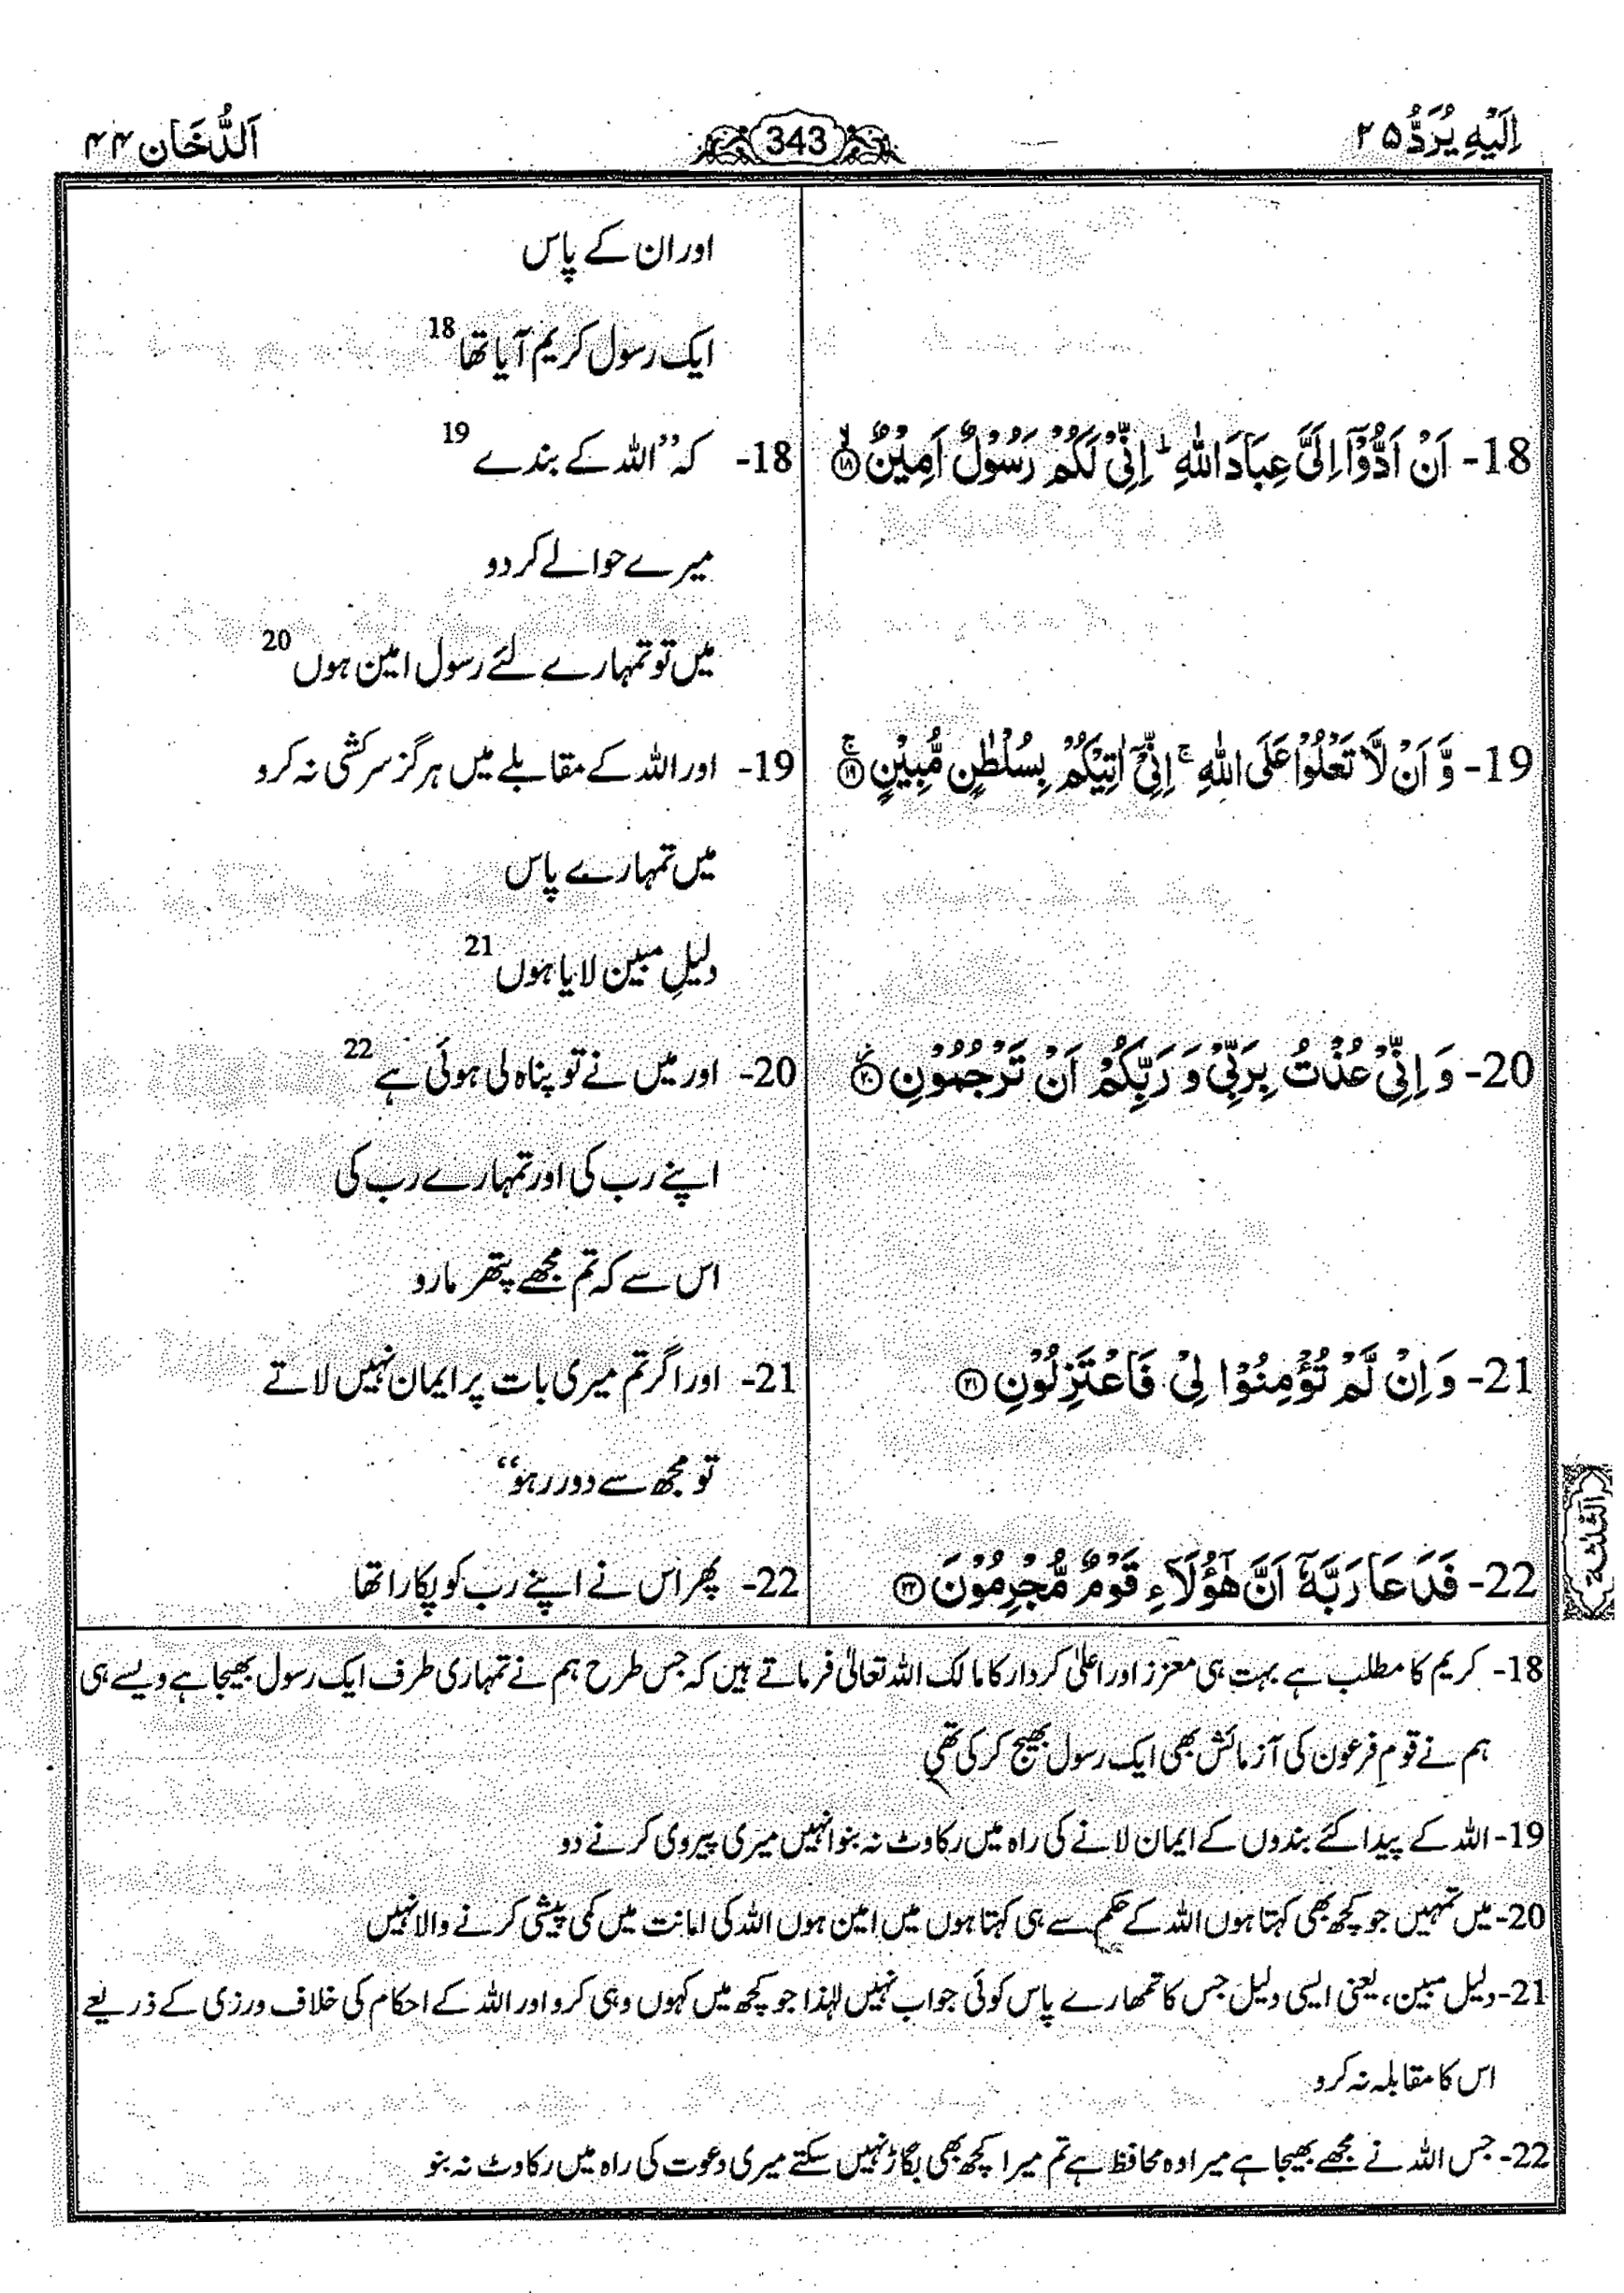 اِلَيْهِ يُرَدُّ ۲۵
343
اَلدُّخَان ۴۴
اور ان کے پاس
ایک رسول کریم آیا تھا 18
18- اَنْ اَدُّوْٓا اِلَیَّ عِبَادَ اللّٰهِ ؕ اِنِّیْ لَكُمْ رَسُوْلٌ اَمِیْنٌ ۙ﴿۱۸﴾
18- کہ ’’اللہ کے بندے 19
میرے حوالے کر دو
میں تو تمہارے لئے رسول امین ہوں 20
19- وَّ اَنْ لَّا تَعْلُوْا عَلَی اللّٰهِ ۚ اِنِّیْٓ اٰتِیْكُمْ بِسُلْطٰنٍ مُّبِیْنٍ ۚ﴿۱۹﴾
19- اور اللہ کے مقابلے میں ہرگز سرکشی نہ کرو
میں تمہارے پاس
دلیلِ مبین لایا ہوں 21
20- وَ اِنِّیْ عُذْتُ بِرَبِّیْ وَ رَبِّكُمْ اَنْ تَرْجُمُوْنِ ۫﴿۲۰﴾
20- اور میں نے تو پناہ لی ہوئی ہے 22
اپنے رب کی اور تمہارے رب کی
اس سے کہ تم مجھے پتھر مارو
21- وَ اِنْ لَّمْ تُؤْمِنُوْا لِیْ فَاعْتَزِلُوْنِ ﴿۲۱﴾
21- اور اگر تم میری بات پر ایمان نہیں لاتے
تو مجھ سے دور رہو‘‘
22- فَدَعَا رَبَّهٗٓ اَنَّ هٰٓؤُلَآءِ قَوْمٌ مُّجْرِمُوْنَ ﴿۲۲﴾
22- پھر اس نے اپنے رب کو پکارا تھا
الثلثة
18- کریم کا مطلب ہے بہت ہی معزز اور اعلیٰ کردار کا مالک اللہ تعالیٰ فرماتے ہیں کہ جس طرح ہم نے تمہاری طرف ایک رسول بھیجا ہے ویسے ہی
ہم نے قومِ فرعون کی آزمائش بھی ایک رسول بھیج کر کی تھی
19- اللہ کے پیدا کئے بندوں کے ایمان لانے کی راہ میں رکاوٹ نہ بنو انہیں میری پیروی کرنے دو
20- میں تمہیں جو کچھ بھی کہتا ہوں اللہ کے حکم سے ہی کہتا ہوں میں امین ہوں اللہ کی امانت میں کمی پیشی کرنے والا نہیں
21- دلیل مبین، یعنی ایسی دلیل جس کا تمھارے پاس کوئی جواب نہیں لہٰذا جو کچھ میں کہوں وہی کرو اور اللہ کے احکام کی خلاف ورزی کے ذریعے
اس کا مقابلہ نہ کرو
22- جس اللہ نے مجھے بھیجا ہے میرا وہ محافظ ہے تم میرا کچھ بھی بگاڑ نہیں سکتے میری دعوت کی راہ میں رکاوٹ نہ بنو